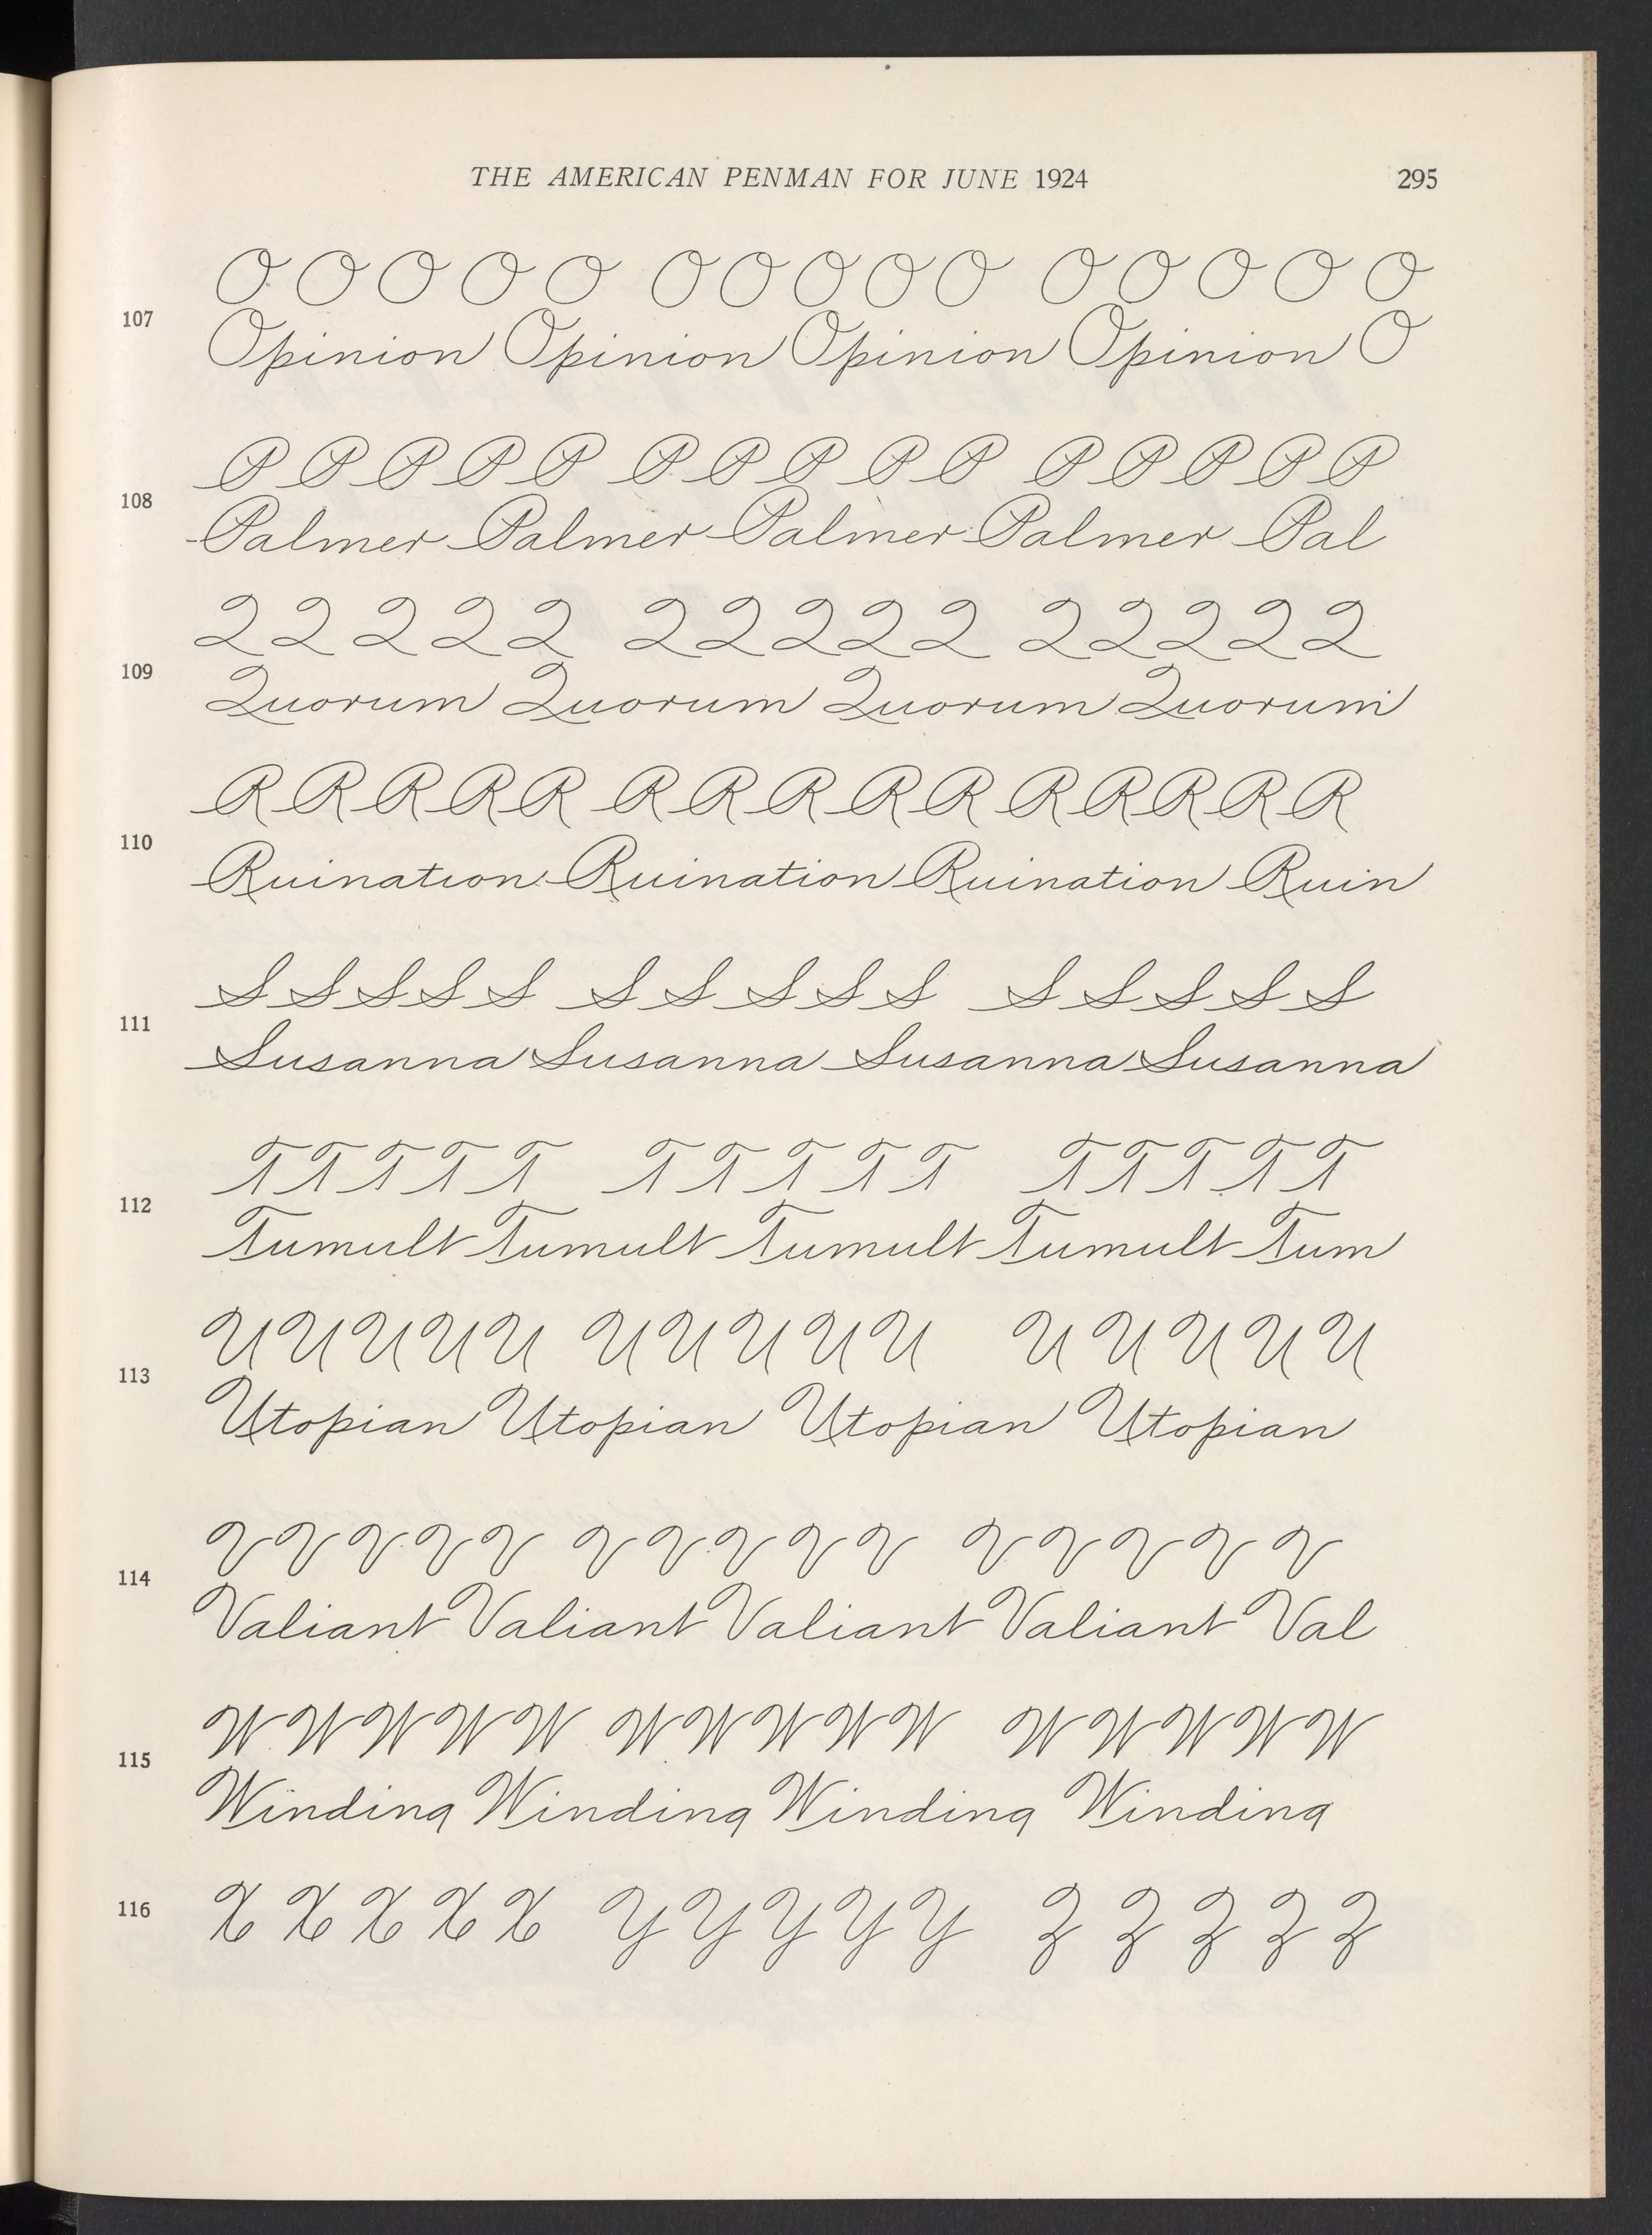 THE AMERICAN PENMAN FOR JUNE 1924 295
O O O O O O O O O O O O O O O
107
Opinion Opinion Opinion Opinion O
P P P P P P P P P P P P P P P
108
Palmer Palmer Palmer Palmer Pal
Q Q Q Q Q Q Q Q Q Q Q Q Q Q Q
109
Quorum Quorum Quorum Quorum
R R R R R R R R R R R R R R R
110
Ruination Ruination Ruination Ruin
S S S S S S S S S S S S S S S
111
Susanna Susanna Susanna Susanna
T T T T T T T T T T T T T T T
112
Tumult Tumult Tumult Tumult Tum
U U U U U U U U U U U U U U U
113
Utopian Utopian Utopian Utopian
V V V V V V V V V V V V V V V
114
Valiant Valiant Valiant Valiant Val
W W W W W W W W W W W W W W W
115
Winding Winding Winding Winding
116 X X X X X Y Y Y Y Y Z Z Z Z Z